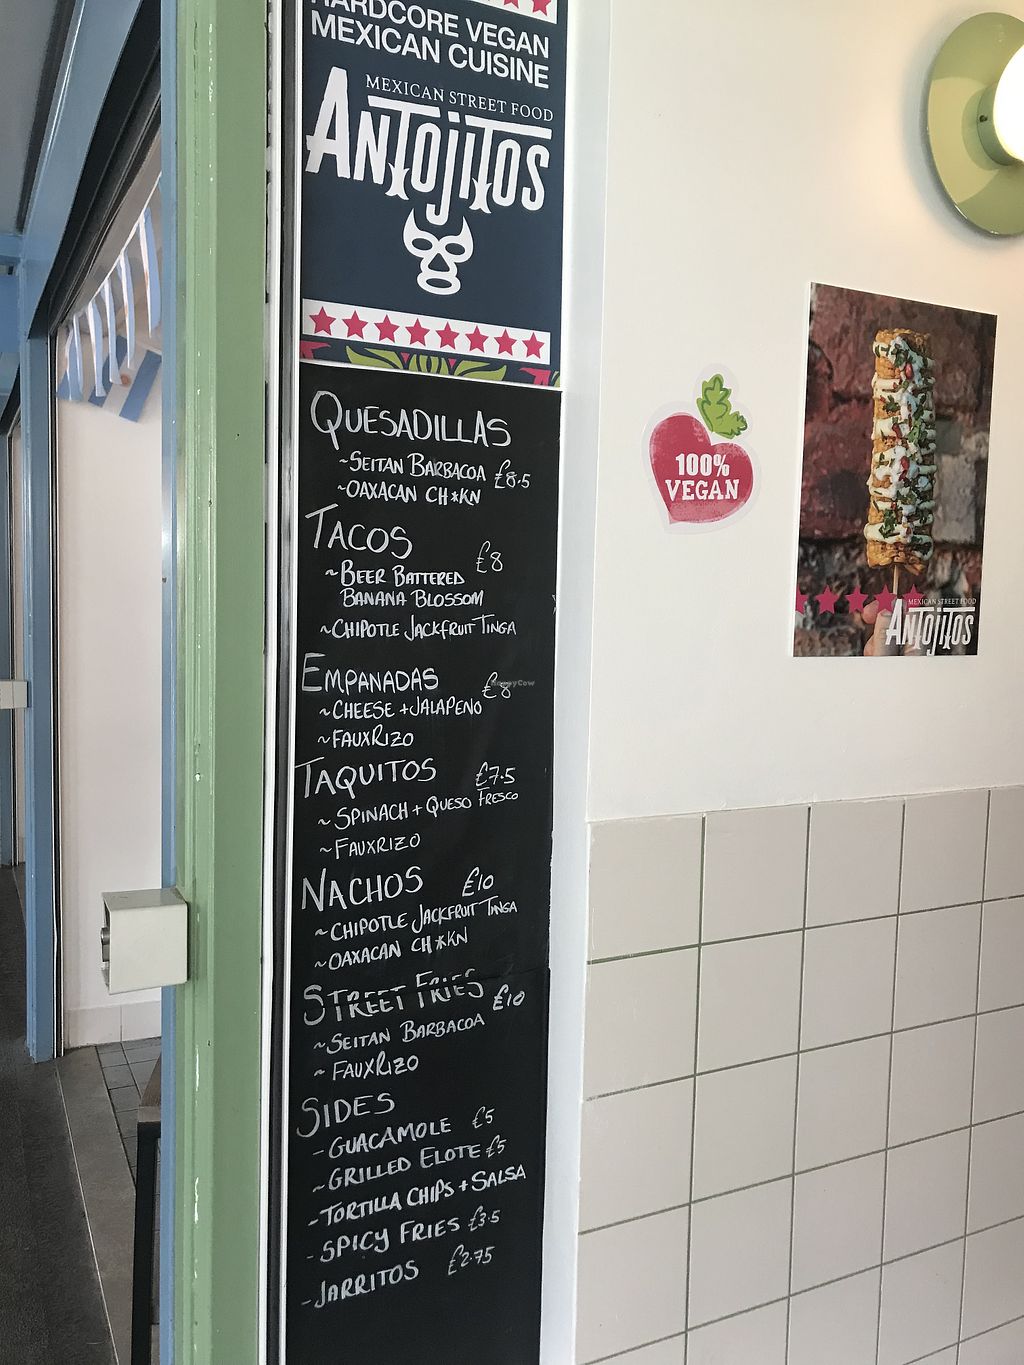 HARDCORE VEGAN
MEXICAN CUISINE
MEXICAN STREET FOOD
ANTOJITOS
QUESADILLAS
~SEITAN BARBACOA £8.5
~OAXACAN CH*KN
TACOS £8
~BEER BATTERED
BANANA BLOSSOM
~CHIPOTLE JACKFRUIT TINGA
EMPANADAS £8
~CHEESE + JALAPENO
~FAUXRIZO
TAQUITOS £7.5
~SPINACH + QUESO FRESCO
~FAUXRIZO
NACHOS £10
~CHIPOTLE JACKFRUIT TINGA
~OAXACAN CH*KN
STREET FRIES £10
~SEITAN BARBACOA
~FAUXRIZO
SIDES
-GUACAMOLE £5
~GRILLED ELOTE £5
-TORTILLA CHIPS + SALSA
-SPICY FRIES £3.5
-JARRITOS £2.75
100%
VEGAN
MEXICAN STREET FOOD
ANTOJITOS
HappyCow